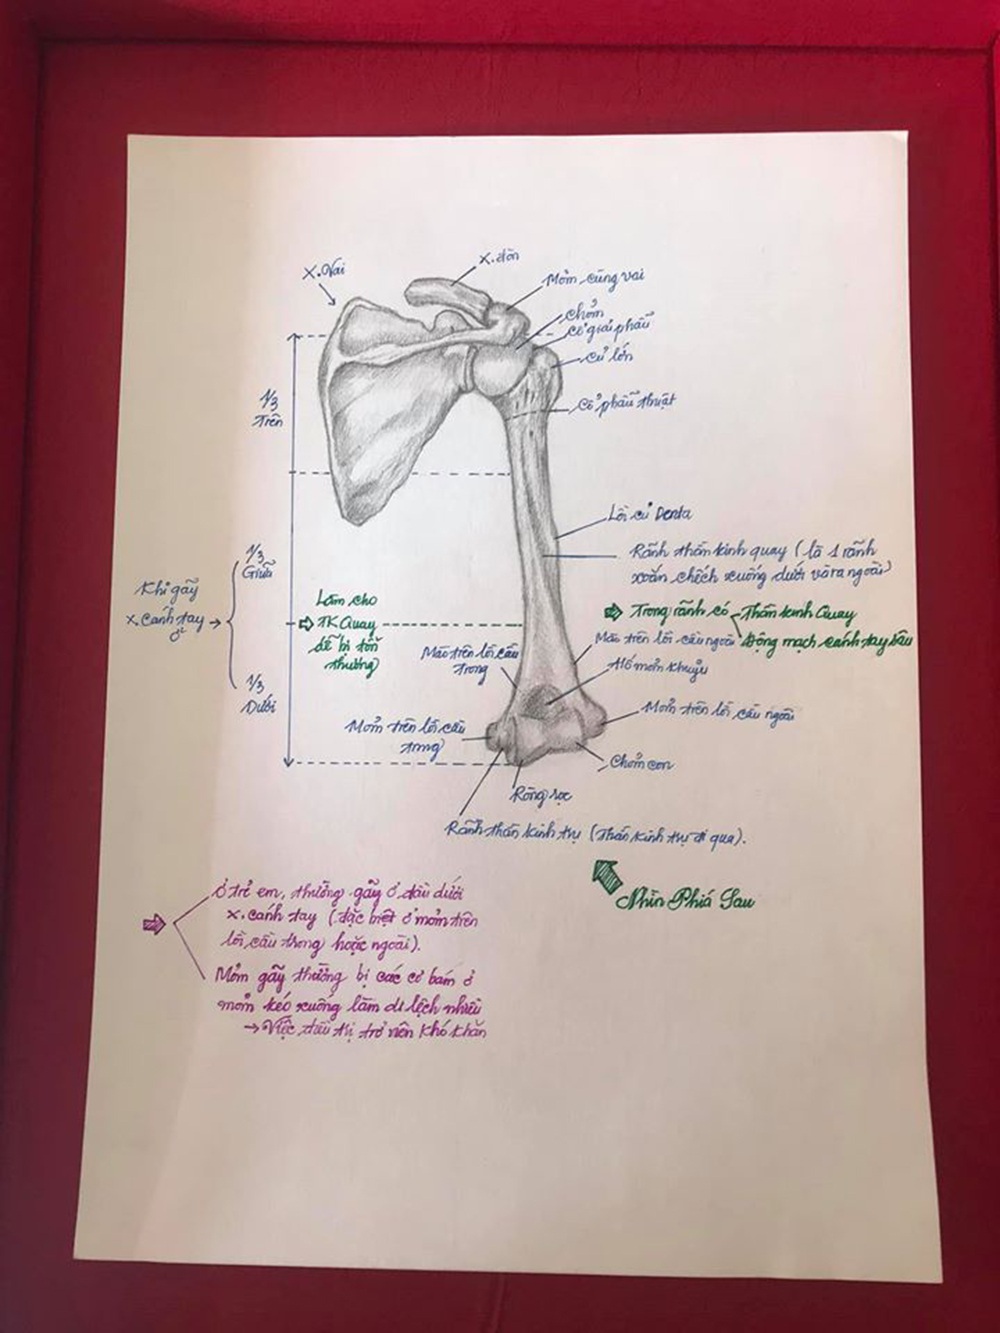 X. Vai
X. đòn
Mỏm cùng vai
Chỏm
Cổ giải phẫu
Củ lớn
Cổ phẫu thuật
1/3
Trên
Lồi củ Denta
Rãnh thần kinh quay (là 1 rãnh
xoắn chếch xuống dưới và ra ngoài)
⇒ Trong rãnh có Thần kinh Quay
Động mạch cánh tay sâu
1/3
Giữa
Khi gãy
x. cánh tay →
ở
1/3
Dưới
Làm cho
⇒ TK Quay
dễ bị tổn
thương
Mào trên lồi cầu
trong
Mào trên lồi cầu ngoài
Hố mỏm khuỷu
Mỏm trên lồi cầu ngoài
Mỏm trên lồi cầu
trong
Chỏm con
Ròng rọc
Rãnh thần kinh trụ (Thần kinh trụ đi qua).
Nhìn Phía Sau
⇒ Ở trẻ em, thường gãy ở đầu dưới
x. cánh tay (đặc biệt ở mỏm trên
lồi cầu trong hoặc ngoài).
Mỏm gãy thường bị các cơ bám ở
mỏm kéo xuống làm di lệch nhiều
→ Việc điều trị trở nên khó khăn